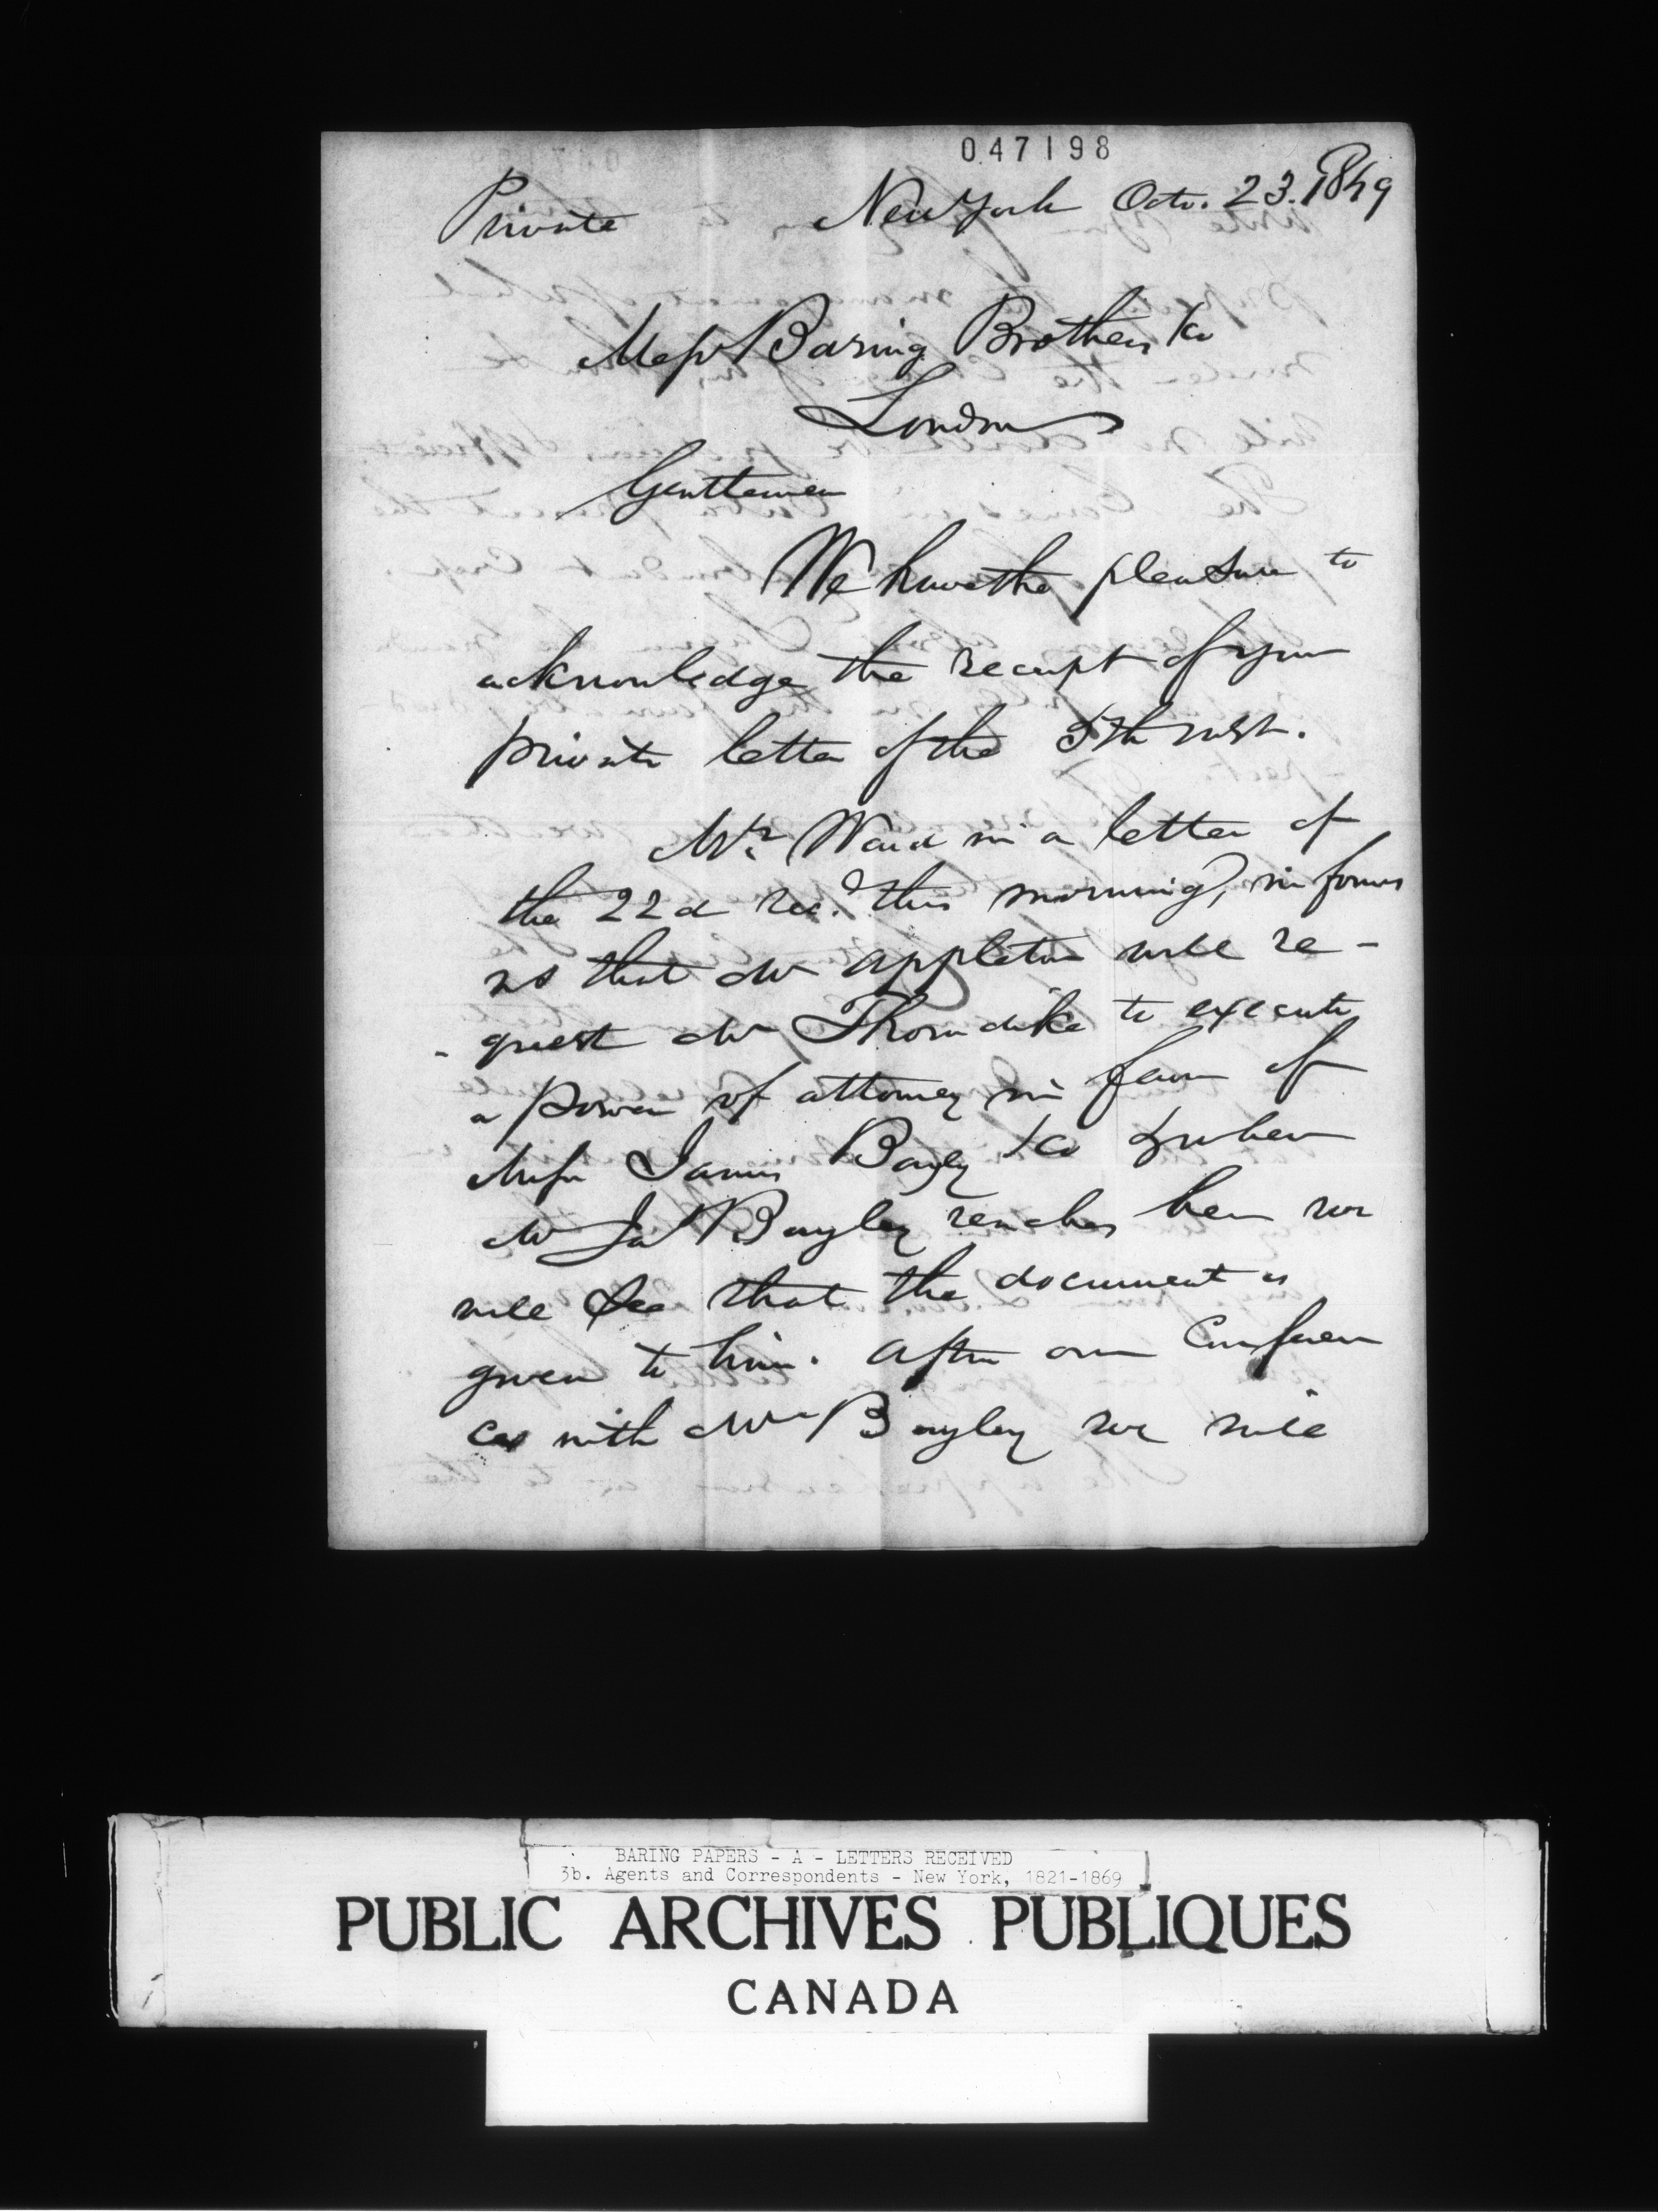 047198
Private New York Octo. 23. 1849
Messrs Baring Brothers & Co
London
Gentlemen
We have the pleasure to
acknowledge the receipt of your
private letter of the 5th inst.
Mr. Ward in a letter of
the 22d rec.d this morning, informs
us that Mr Appleton will re-
-quest Mr Thorndike to execute
a power of attorney in favor of
Messrs James Bayley & Co & when
Mr Ja Bayley reaches here we
will see that the document is
given to him. After our Conferen
ces with Mr Bayley we will
BARING PAPERS - A - LETTERS RECEIVED
3b. Agents and Correspondents - New York, 1821-1869
PUBLIC ARCHIVES PUBLIQUES
CANADA